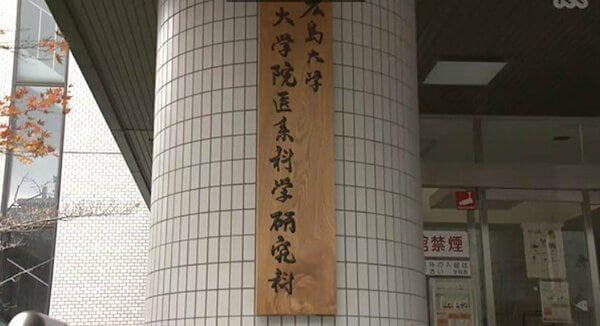 広島大学
大学院医系科学研究科
館禁煙
tss